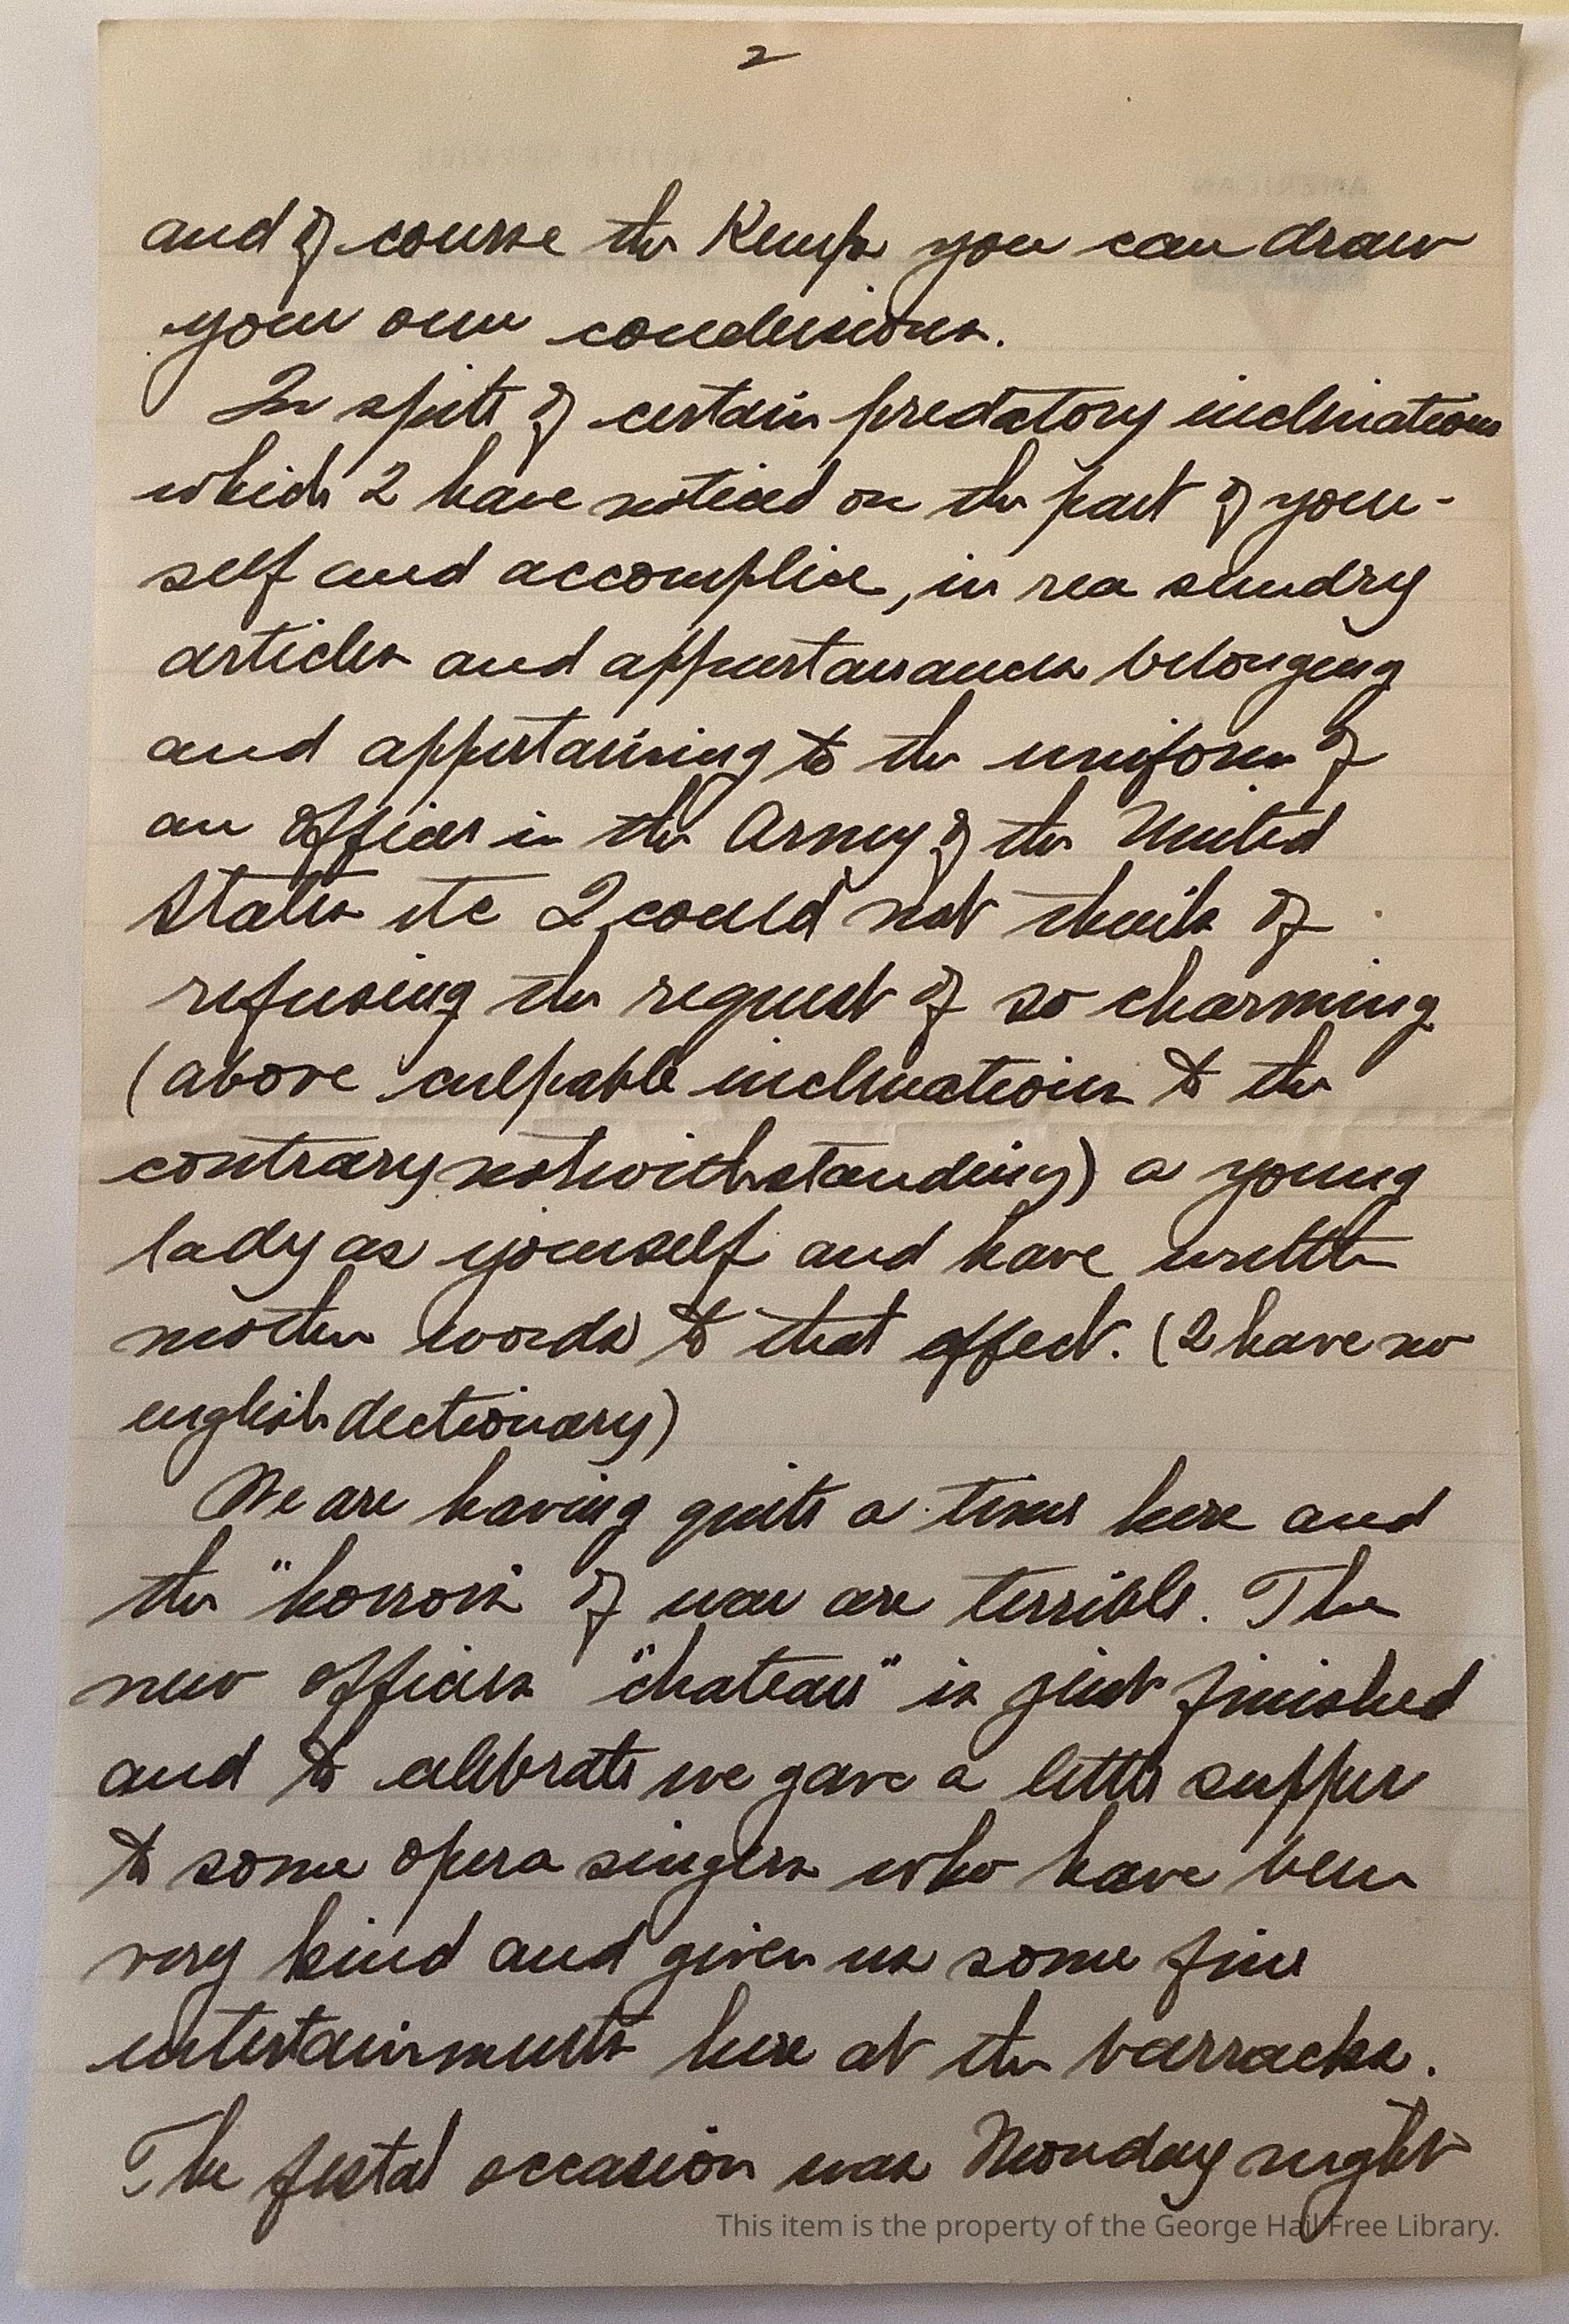 2
and of course the Kemps you can draw
your own conclusions.
In spite of certain predatory inclinations
which I have noticed on the part of your-
self and accomplice, in rea sundry
articles and appurtanances belonging
and appertaining to the uniform of
an officer in the Army of the United
States etc I could not think of
refusing the request of so charming
(above culpable inclinations to the
contrary notwithstanding) a young
lady as yourself and have written
mother words to that effect. (I have no
english dectionary)
We are having quite a time here and
the "horrors of war are terrible. The
new officers "chateau" is just finished
and to celebrate we gave a little supper
to some opera singers who have been
very kind and given us some fine
entertainments here at the barracks.
The festal occasion was Monday night
This item is the property of the George Hail Free Library.